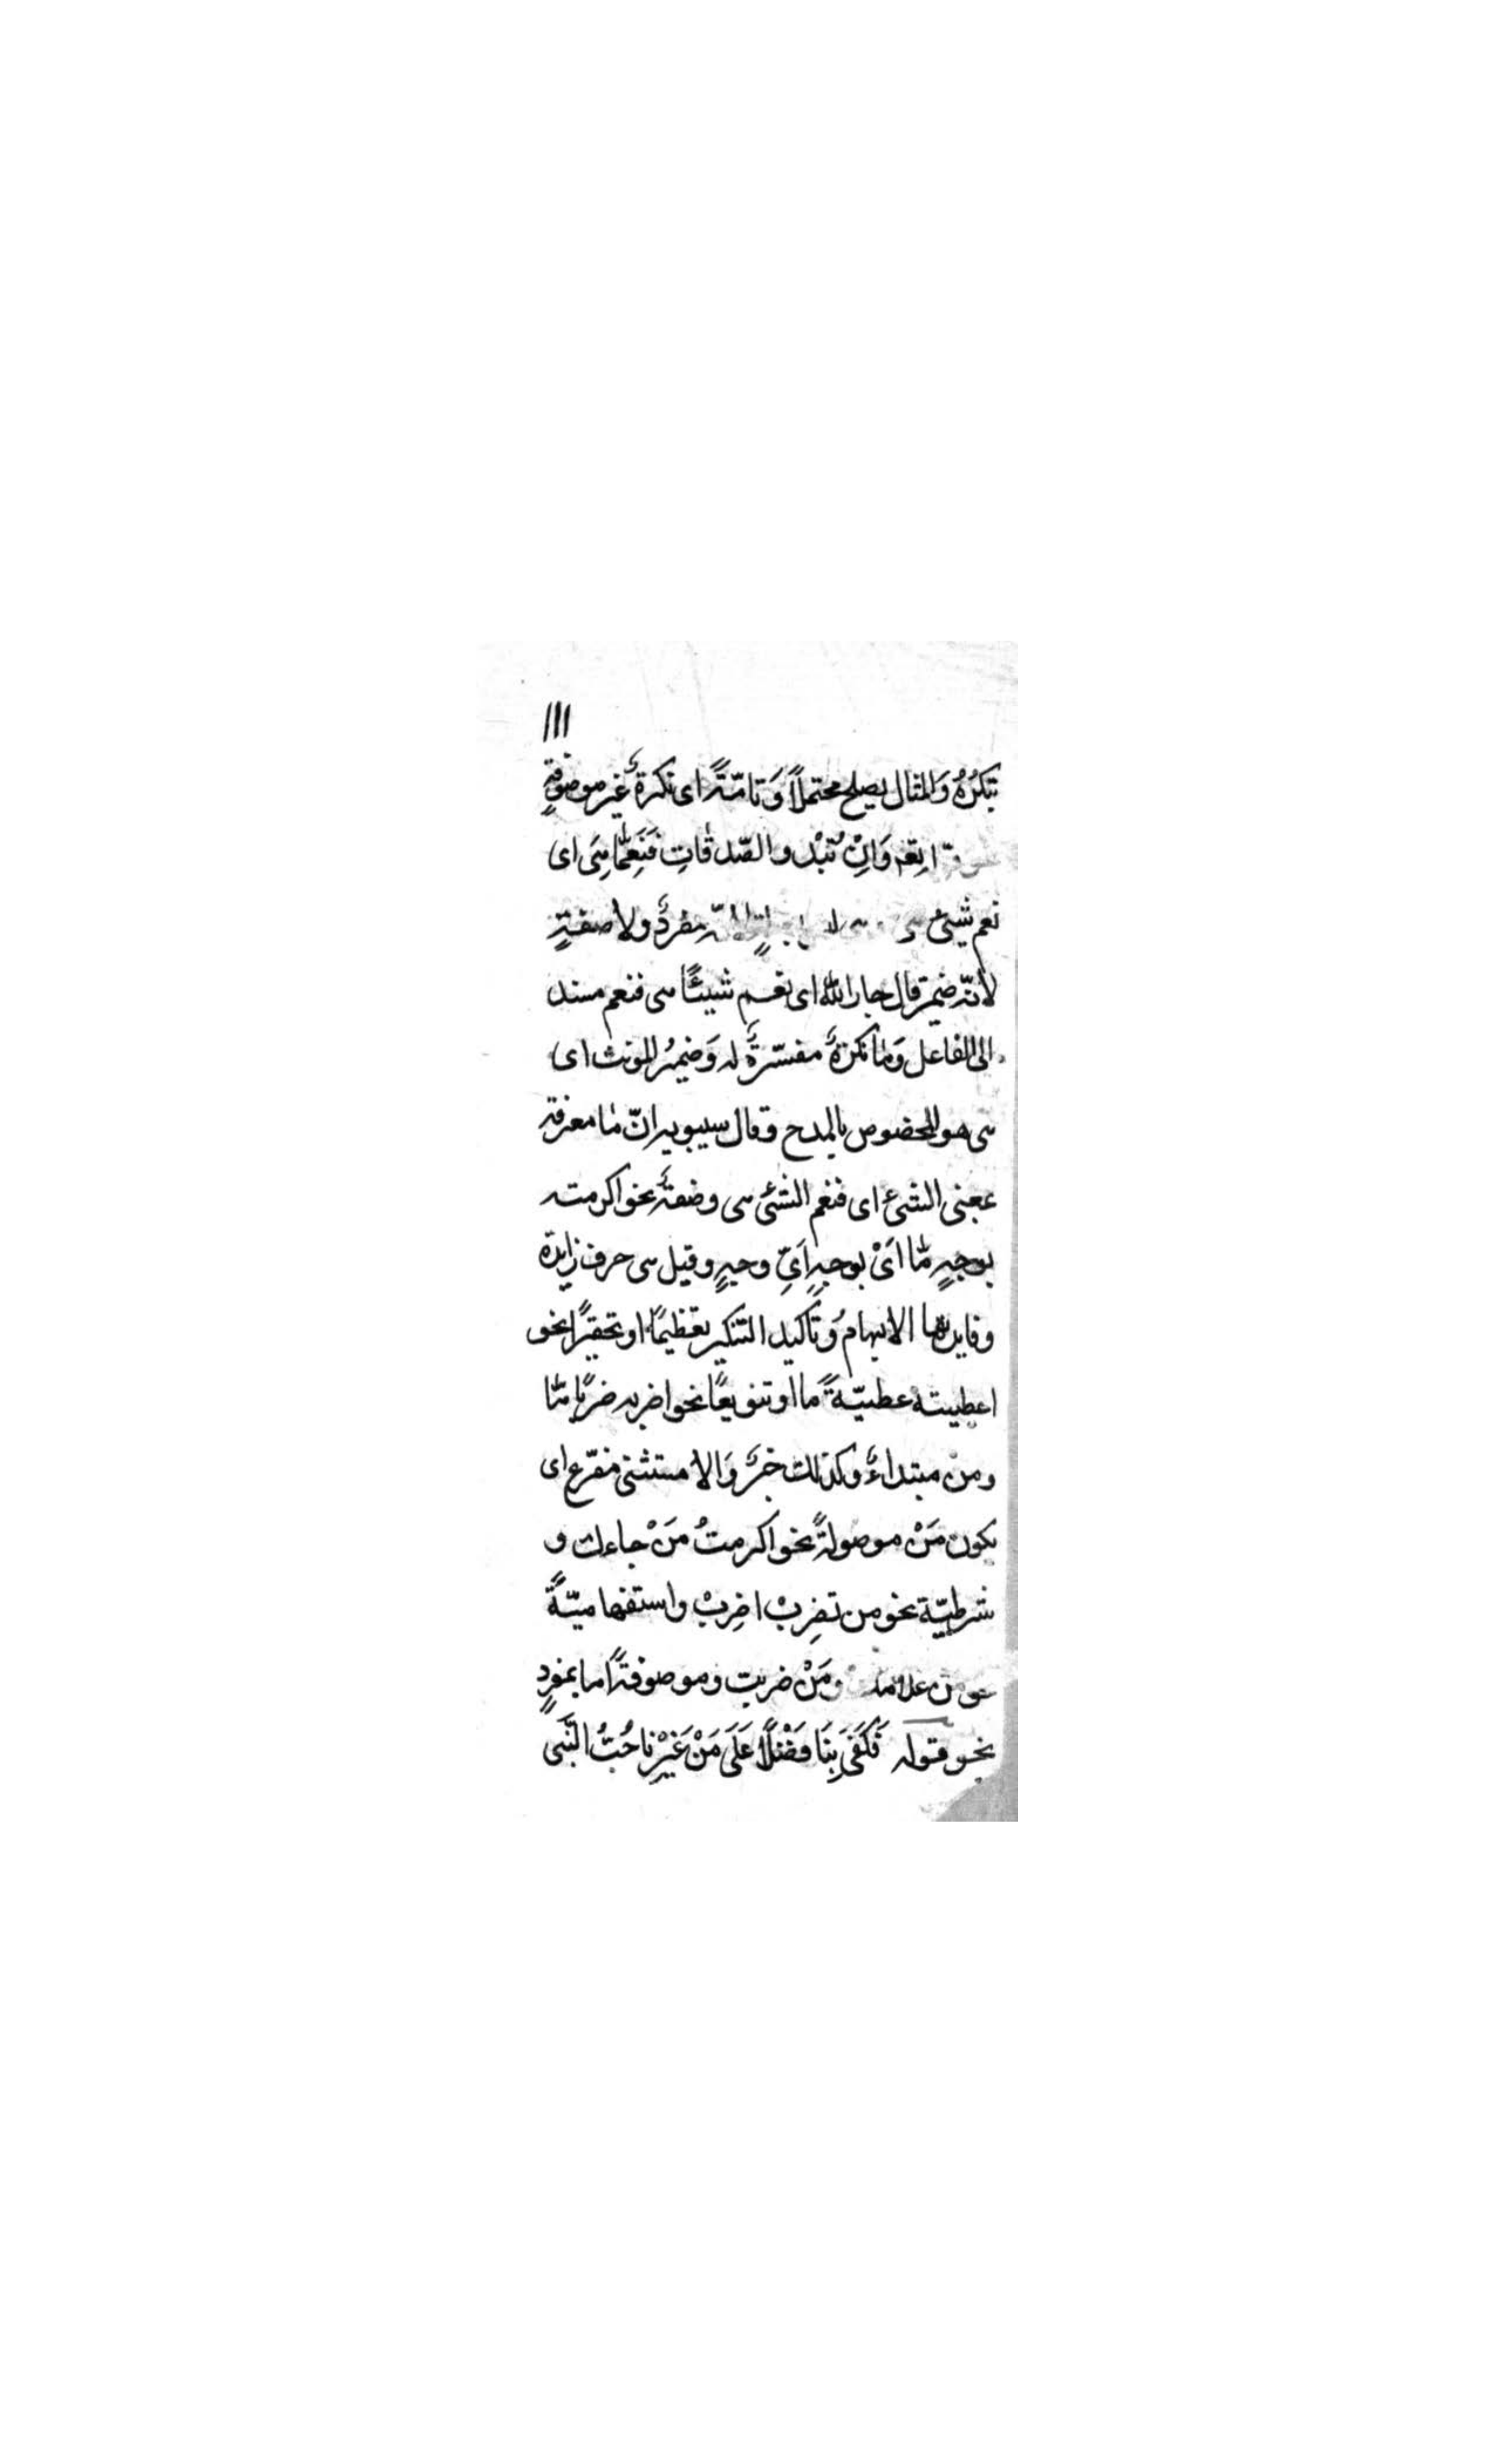 ١١١
تكرهُ وَالمثال يصلح محتملاً وَتامّةً اى نكرة غير موصوفةٍ
وَاِنْ تُبْدوا الصّدقاتِ فَنِعِمّا هِىَ اى
نعم شيئ هى مفردٌ ولا صفةٍ
لأنّه ضمير قال جار اللّه اى نعم شيئًا هى فنعم مسند
الى الفاعل وَما نكرةٌ مفسّرةٌ له وَضميرُ المونث اى
هى هو المخصوص بالمدح وقال سيبويه انّ ما معرفة
بمعنى الشئ اى فنعم الشئ هى وصفةً نحو اكرمته
بوجهٍ مّا اىْ بوجهٍ اَىِّ وجهٍ وقيل هى حرف زايدة
وفايدتها الابهامُ وَتأكيد التنكير تعظيمًا او تحقيرًا نحو
اعطيته عطيّةً ما او تنويعًا نحو اضربه ضربًا مّا
ومن مبتداءٌ وكذلك خبرٌ وَالا مستثنى مفرّغ اى
يكون مَنْ موصولةً نحو اكرمتُ مَنْ جاءك و
شرطيّة نحو من تضرِبْ اضرِبْ واستفهاميّةً
نحو من غلامك ومَنْ ضربت وموصوفةً اما بمفردٍ
نحو قوله فَكَفَىَ بِنَا فَضْلًا عَلَىَ مَنْ غَيْرِنا حُبُّ النَّبىِّ